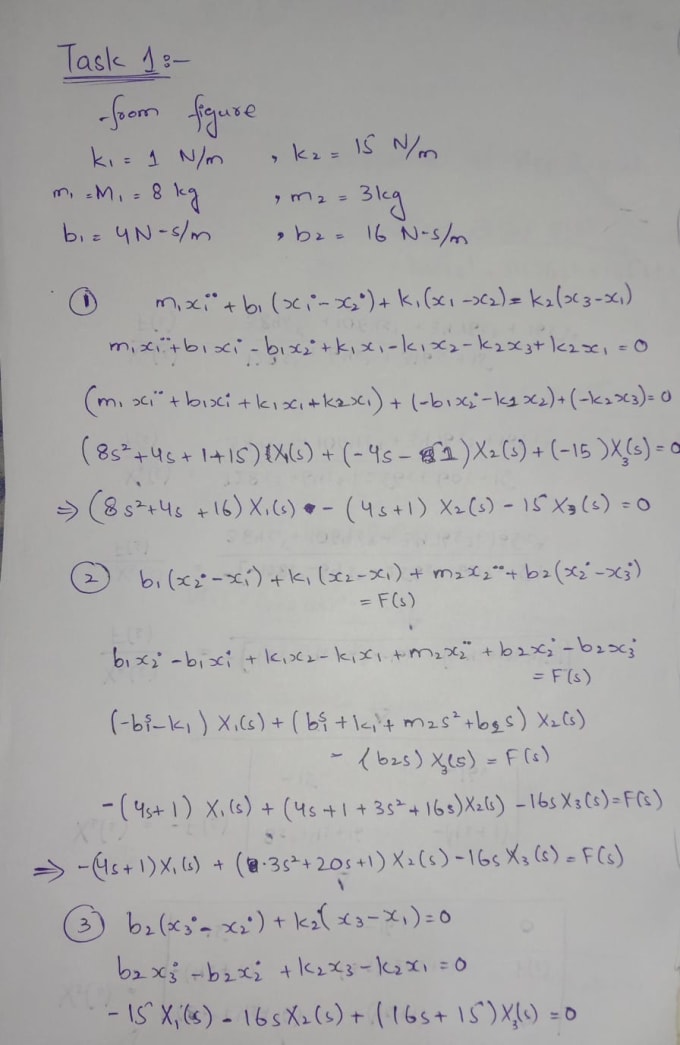 Task 1:-
-from figure
k₁ = 1 N/m , k₂ = 15 N/m
m₁ = M₁ = 8 kg , m₂ = 3kg
b₁ = 4N-s/m , b₂ = 16 N-s/m
① m₁ẍ₁ + b₁(ẋ₁ - ẋ₂) + k₁(x₁ - x₂) = k₂(x₃ - x₁)
m₁ẍ₁ + b₁ẋ₁ - b₁ẋ₂ + k₁x₁ - k₁x₂ - k₂x₃ + k₂x₁ = 0
(m₁ẍ₁ + b₁ẋ₁ + k₁x₁ + k₂x₁) + (-b₁ẋ₂ - k₁x₂) + (-k₂x₃) = 0
(8s² + 4s + 1 + 15) X₁(s) + (-4s - 1) X₂(s) + (-15) X₃(s) = 0
⇒ (8s² + 4s + 16) X₁(s) - (4s+1) X₂(s) - 15 X₃(s) = 0
② b₁(ẋ₂ - ẋ₁) + k₁(x₂ - x₁) + m₂ẍ₂ + b₂(ẋ₂ - ẋ₃)
= F(s)
b₁ẋ₂ - b₁ẋ₁ + k₁x₂ - k₁x₁ + m₂ẍ₂ + b₂ẋ₂ - b₂ẋ₃
= F(s)
(-b₁s - k₁) X₁(s) + (b₁s + k₁ + m₂s² + b₂s) X₂(s)
- (b₂s) X₃(s) = F(s)
-(4s+1) X₁(s) + (4s + 1 + 3s² + 16s) X₂(s) - 16s X₃(s) = F(s)
⇒ -(4s+1) X₁(s) + (3s² + 20s + 1) X₂(s) - 16s X₃(s) = F(s)
③ b₂(ẋ₃ - ẋ₂) + k₂(x₃ - x₁) = 0
b₂ẋ₃ - b₂ẋ₂ + k₂x₃ - k₂x₁ = 0
- 15 X₁(s) - 16s X₂(s) + (16s + 15) X₃(s) = 0